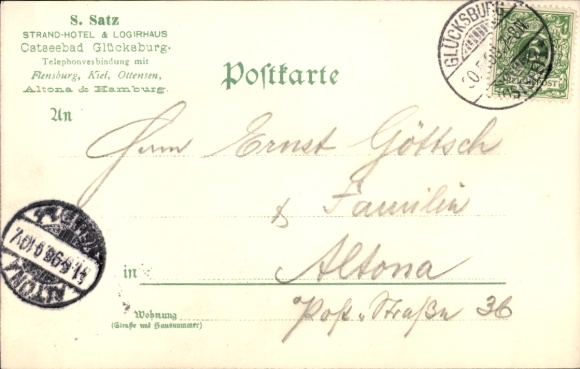 S. Satz
STRAND-HOTEL & LOGIRHAUS
Ostseebad Glücksburg.
Telephonverbindung mit
Flensburg, Kiel, Ottensen,
Altona & Hamburg.
GLÜCKSBURG
Postkarte
An
Herrn Ernst Göttsch
& Familie
in Altona
Wohnung
(Straße und Hausnummer)
Post-Straße 36
ALTONA